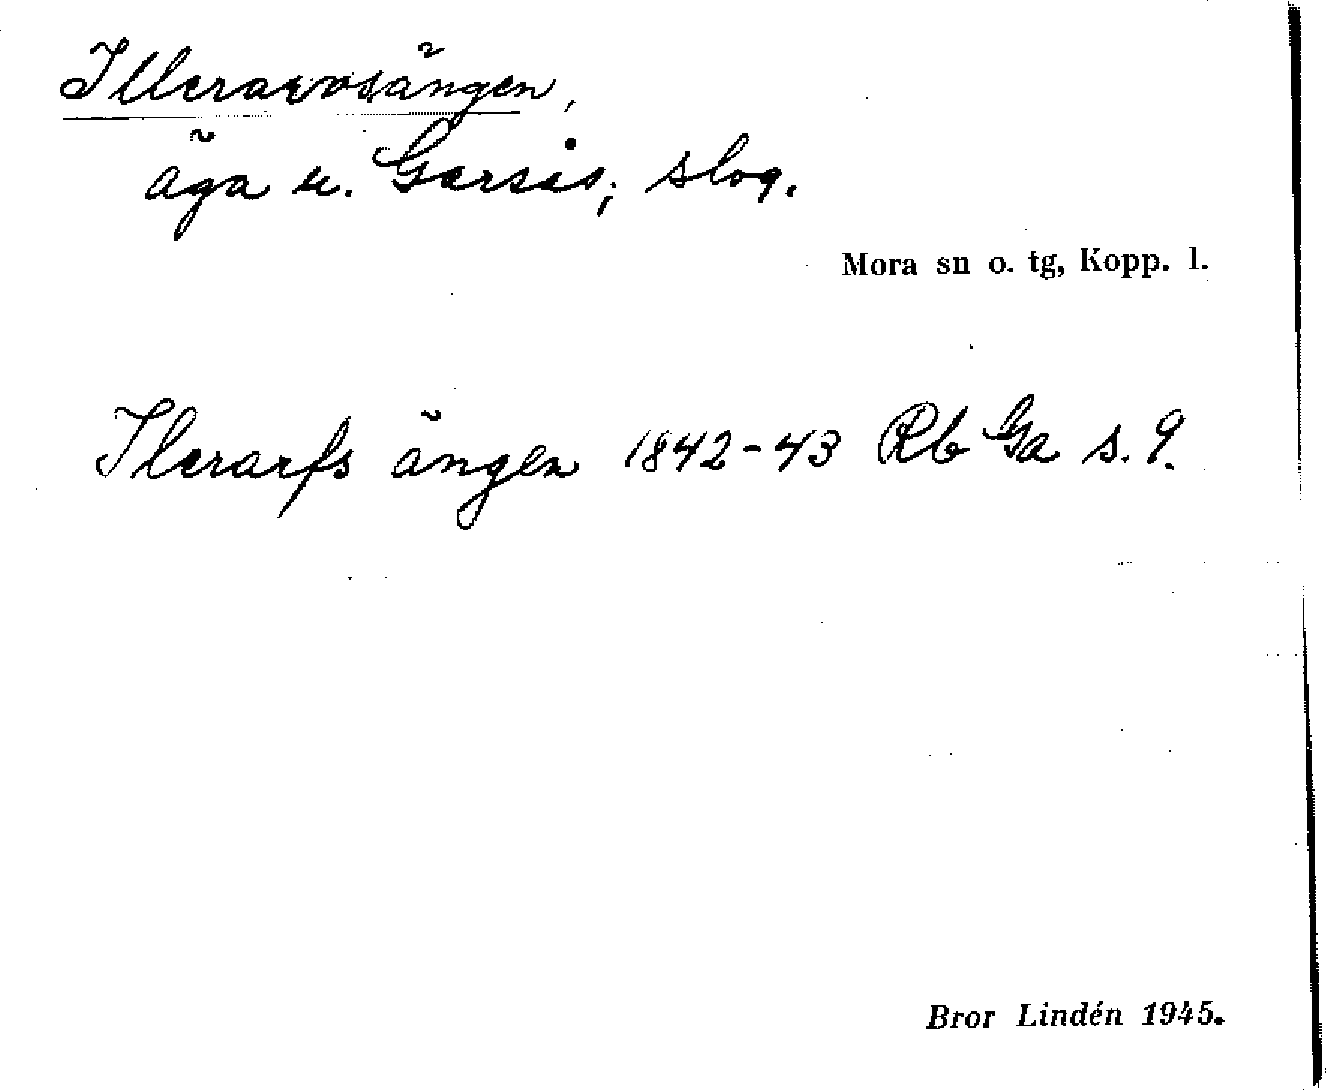 Illerarvsängen,
äga u. Garsås; slog.
Mora sn o. tg, Kopp. l.
Ilerarfs ängen 1842-43 Rb Ga s. 9.
Bror Lindén 1945.